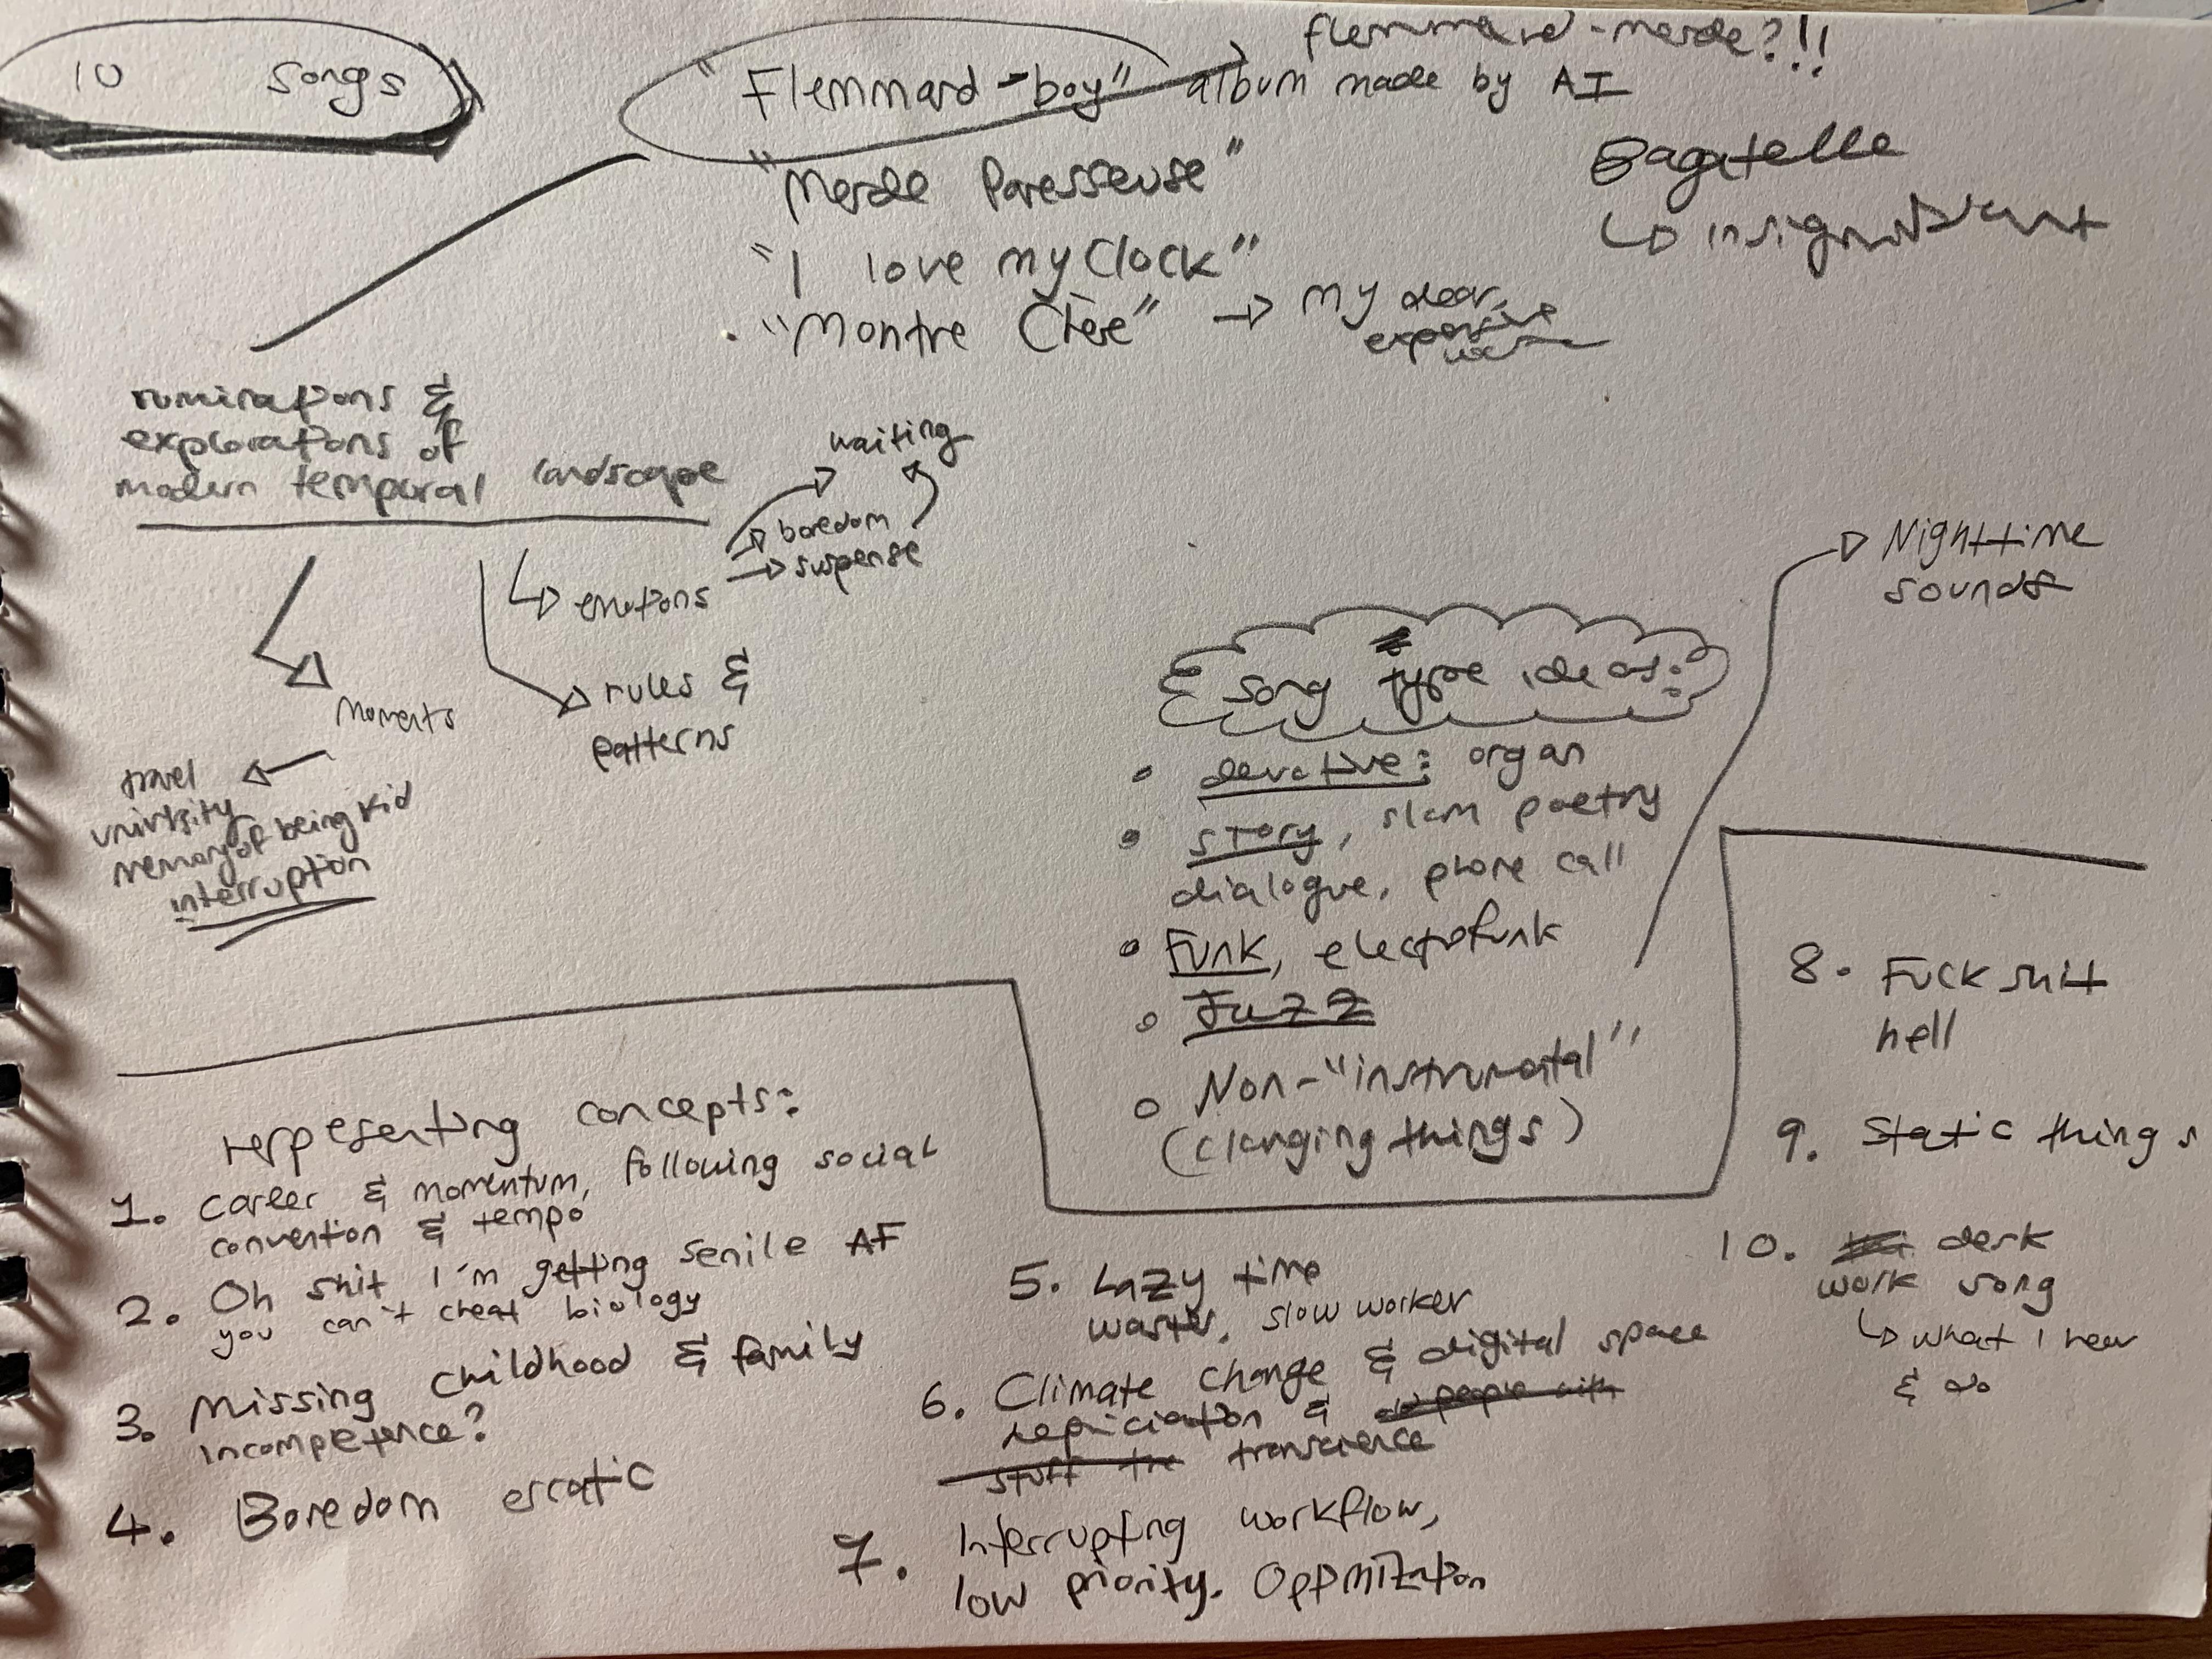 10 songs
flemmard-merde?!!
"Flemmard-boy" album made by AI
"Merde Paresseuse"
"I love my Clock"
"Montre Chère" → my dear,
expensive
Bagatelle
↳ insignificant
ruminations &
explorations of
modern temporal landscape
waiting
→ boredom
→ suspense
↳ emotions
rules &
patterns
Moments
travel
university
memory of being kid
interruption
Nighttime
sounds
song type ideas:
• devotive: organ
• story, slam poetry
dialogue, phone call
• Funk, electrofunk
• Fuzz
• Non-"instrumental"
(clanging things)
representing concepts:
1. career & momentum, following social
convention & tempo
2. Oh shit I'm getting senile AF
you can't cheat biology
3. Missing childhood & family
incompetence?
4. Boredom erratic
5. Lazy time
waster, slow worker
6. Climate change & digital space
& old people with
stuff the transcience
7. Interrupting workflow,
low priority. Optimization
8. Fuck shit
hell
9. Static things
10. desk
work song
↳ what I hear
& do